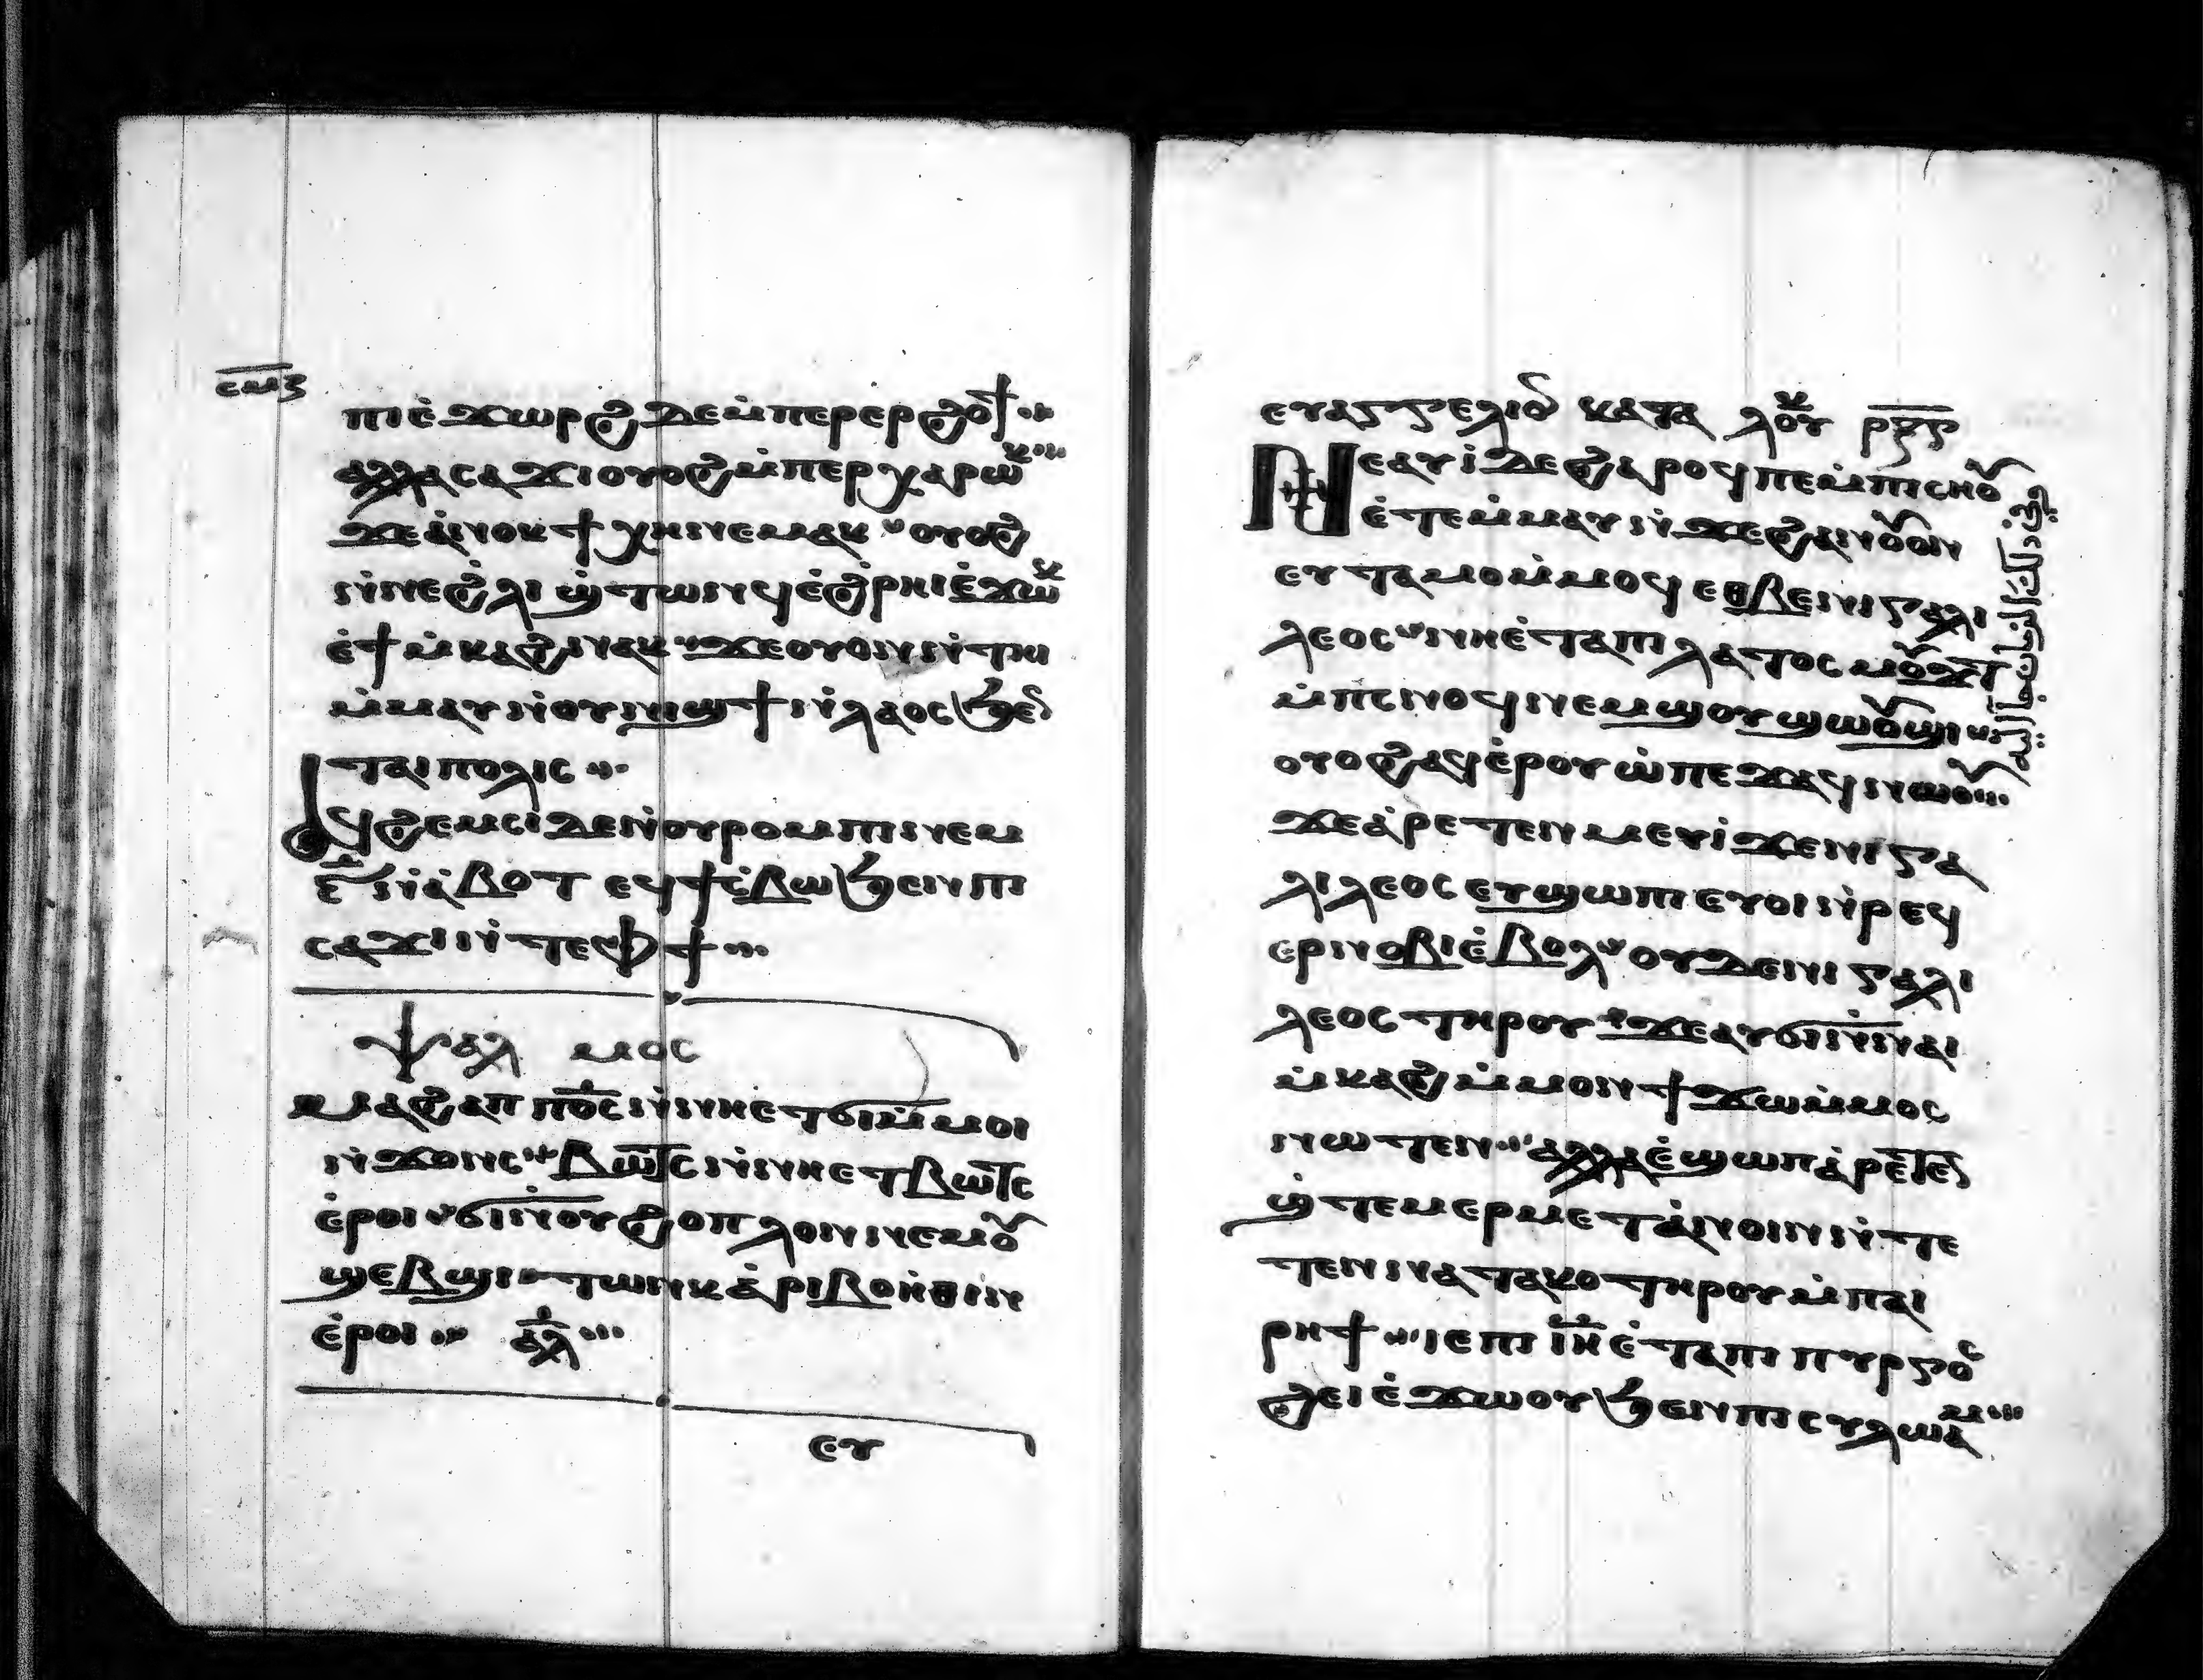 ⲥⲙⲋ
ⲡⲓⲉ̀ϫⲱⲣϩ ϫⲉ ⲙ̀ⲡⲉⲣⲉⲣϩⲟϯ
ⲁⲗⲗⲁ ⲥⲁϫⲓ ⲟⲩⲟϩ ⲙ̀ⲡⲉⲣⲭⲁⲣⲱⲕ
ϫⲉ ⲁ̀ⲛⲟⲕ ϯⲭⲏ ⲛⲉⲙⲁⲕ ⲟⲩⲟϩ
ⲛ̀ⲛⲉ ϩ̀ⲗⲓ ϣ̀ⲧⲱⲛϥ ⲉ̀ϩ̀ⲣⲏⲓ ⲉ̀ϫⲱⲕ
ⲉ̀ϯⲙ̀ⲕⲁϩ ⲛⲁⲕ ϫⲉ ⲟⲩⲟⲛ ⲛ̀ⲧⲏⲓ
ⲙ̀ⲙⲁⲩ ⲛ̀ⲟⲩⲛⲓϣϯ ⲛ̀ⲗⲁⲟⲥ ϧⲉⲛ
ⲧⲁⲓⲡⲟⲗⲓⲥ
ⲁϥϩⲉⲙⲥⲓ ⲇⲉ ⲛ̀ⲟⲩⲣⲟⲙⲡⲓ ⲛⲉⲙ
ⲋ̅ ⲛ̀ⲁ̀ⲃⲟⲧ ⲉϥϯⲥ̀ⲃⲱ ϧⲉⲛ ⲡⲓ
ⲥⲁϫⲓ ⲛ̀ⲧⲉ ⲫϯ
ⲯⲁⲗⲙⲟⲥ
ⲙⲁϩⲁⲡ ⲡⲟ̅ⲥ̅ ⲛ̀ⲛⲏⲉⲧϭⲓ ⲙ̀ⲙⲟⲓ
ⲛ̀ϫⲟⲛⲥ ⲃⲱⲧⲥ ⲛ̀ⲛⲏⲉⲧⲃⲱⲧⲥ
ⲉ̀ⲣⲟⲓ ϭⲓ ⲛ̀ⲟⲩϩⲟⲡⲗⲟⲛ ⲛⲉⲙ ⲟⲩ
ϣⲉⲃϣⲓ ⲧⲱⲛⲕ ⲁ̀ⲣⲓⲃⲟⲏ̀ⲑⲓⲛ
ⲉ̀ⲣⲟⲓ ⲁⲗ
ⲉⲩ
ⲉⲩⲁⲅⲅⲉⲗⲓⲟⲛ ⲕⲁⲧⲁ ⲗⲟⲩⲕ
ⲛⲉⲁⲩⲓ̀ ⲇⲉ ϩⲁⲣⲟϥ ⲡⲉ ⲙ̀ⲡⲓⲥⲏⲟⲩ
ⲉ̀ⲧⲉⲙ̀ⲙⲁⲩ ⲛ̀ϫⲉ ϩⲁⲛⲟⲩⲟⲛ
ⲉⲩⲧⲁⲙⲟ ⲙ̀ⲙⲟϥ ⲉⲑⲃⲉ ⲛⲓⲅⲁⲗⲓ
ⲗⲉⲟⲥ ⲛⲏⲉ̀ⲧⲁ ⲡⲓⲗⲁⲧⲟⲥ ⲙⲟⲩϫⲧ
ⲙ̀ⲡⲥⲛⲟϥ ⲛⲉⲙ ϣⲟⲩϣⲱⲟⲩϣⲓ
ⲟⲩⲟϩ ⲁϥⲉ̀ⲣⲟⲩⲱ̀ ⲡⲉϫⲁϥ ⲛⲱⲟⲩ
ϫⲉ ⲁ̀ⲣⲉⲧⲉⲛⲙⲉⲩⲓ̀ ϫⲉ ⲛⲓⲅⲁ
ⲗⲓⲗⲉⲟⲥ ⲉⲧϣⲱⲡⲓ ⲉⲩⲟⲓ ⲛ̀ⲣⲉϥ
ⲉⲣⲛⲟⲃⲓ ⲉ̀ⲃⲟⲗ ⲟⲩⲇⲉ ⲛⲓⲅⲁⲗⲓ
ⲗⲉⲟⲥ ⲧⲏⲣⲟⲩ ϫⲉ ⲁⲩϭⲓ ⲛ̀ⲛⲁⲓ
ⲙ̀ⲕⲁⲩϩ ⲙ̀ⲙⲟⲛ ϯϫⲱ ⲙ̀ⲙⲟⲥ
ⲛⲱⲧⲉⲛ ⲁⲗⲗⲁ ⲉ̀ϣⲱⲡ ⲁ̀ⲣⲉⲧⲉⲛ
ϣ̀ⲧⲉⲙⲉⲣⲙⲉⲧⲁ̀ⲛⲟⲓⲛ ⲛ̀ⲧⲉ
ⲧⲉⲛⲛⲁⲧⲁⲕⲟ ⲧⲏⲣⲟⲩ ⲙ̀ⲡⲁⲓ
ⲣⲏϯ ⲓⲉ ⲡⲓⲓ̅ⲏ̅ ⲉ̀ⲧⲁ ⲡⲓⲡⲩⲣⲅⲟⲥ
ϩⲉⲓ ⲉ̀ϫⲱⲟⲩ ϧⲉⲛ ⲡⲓⲥⲩⲗⲱⲁⲙ